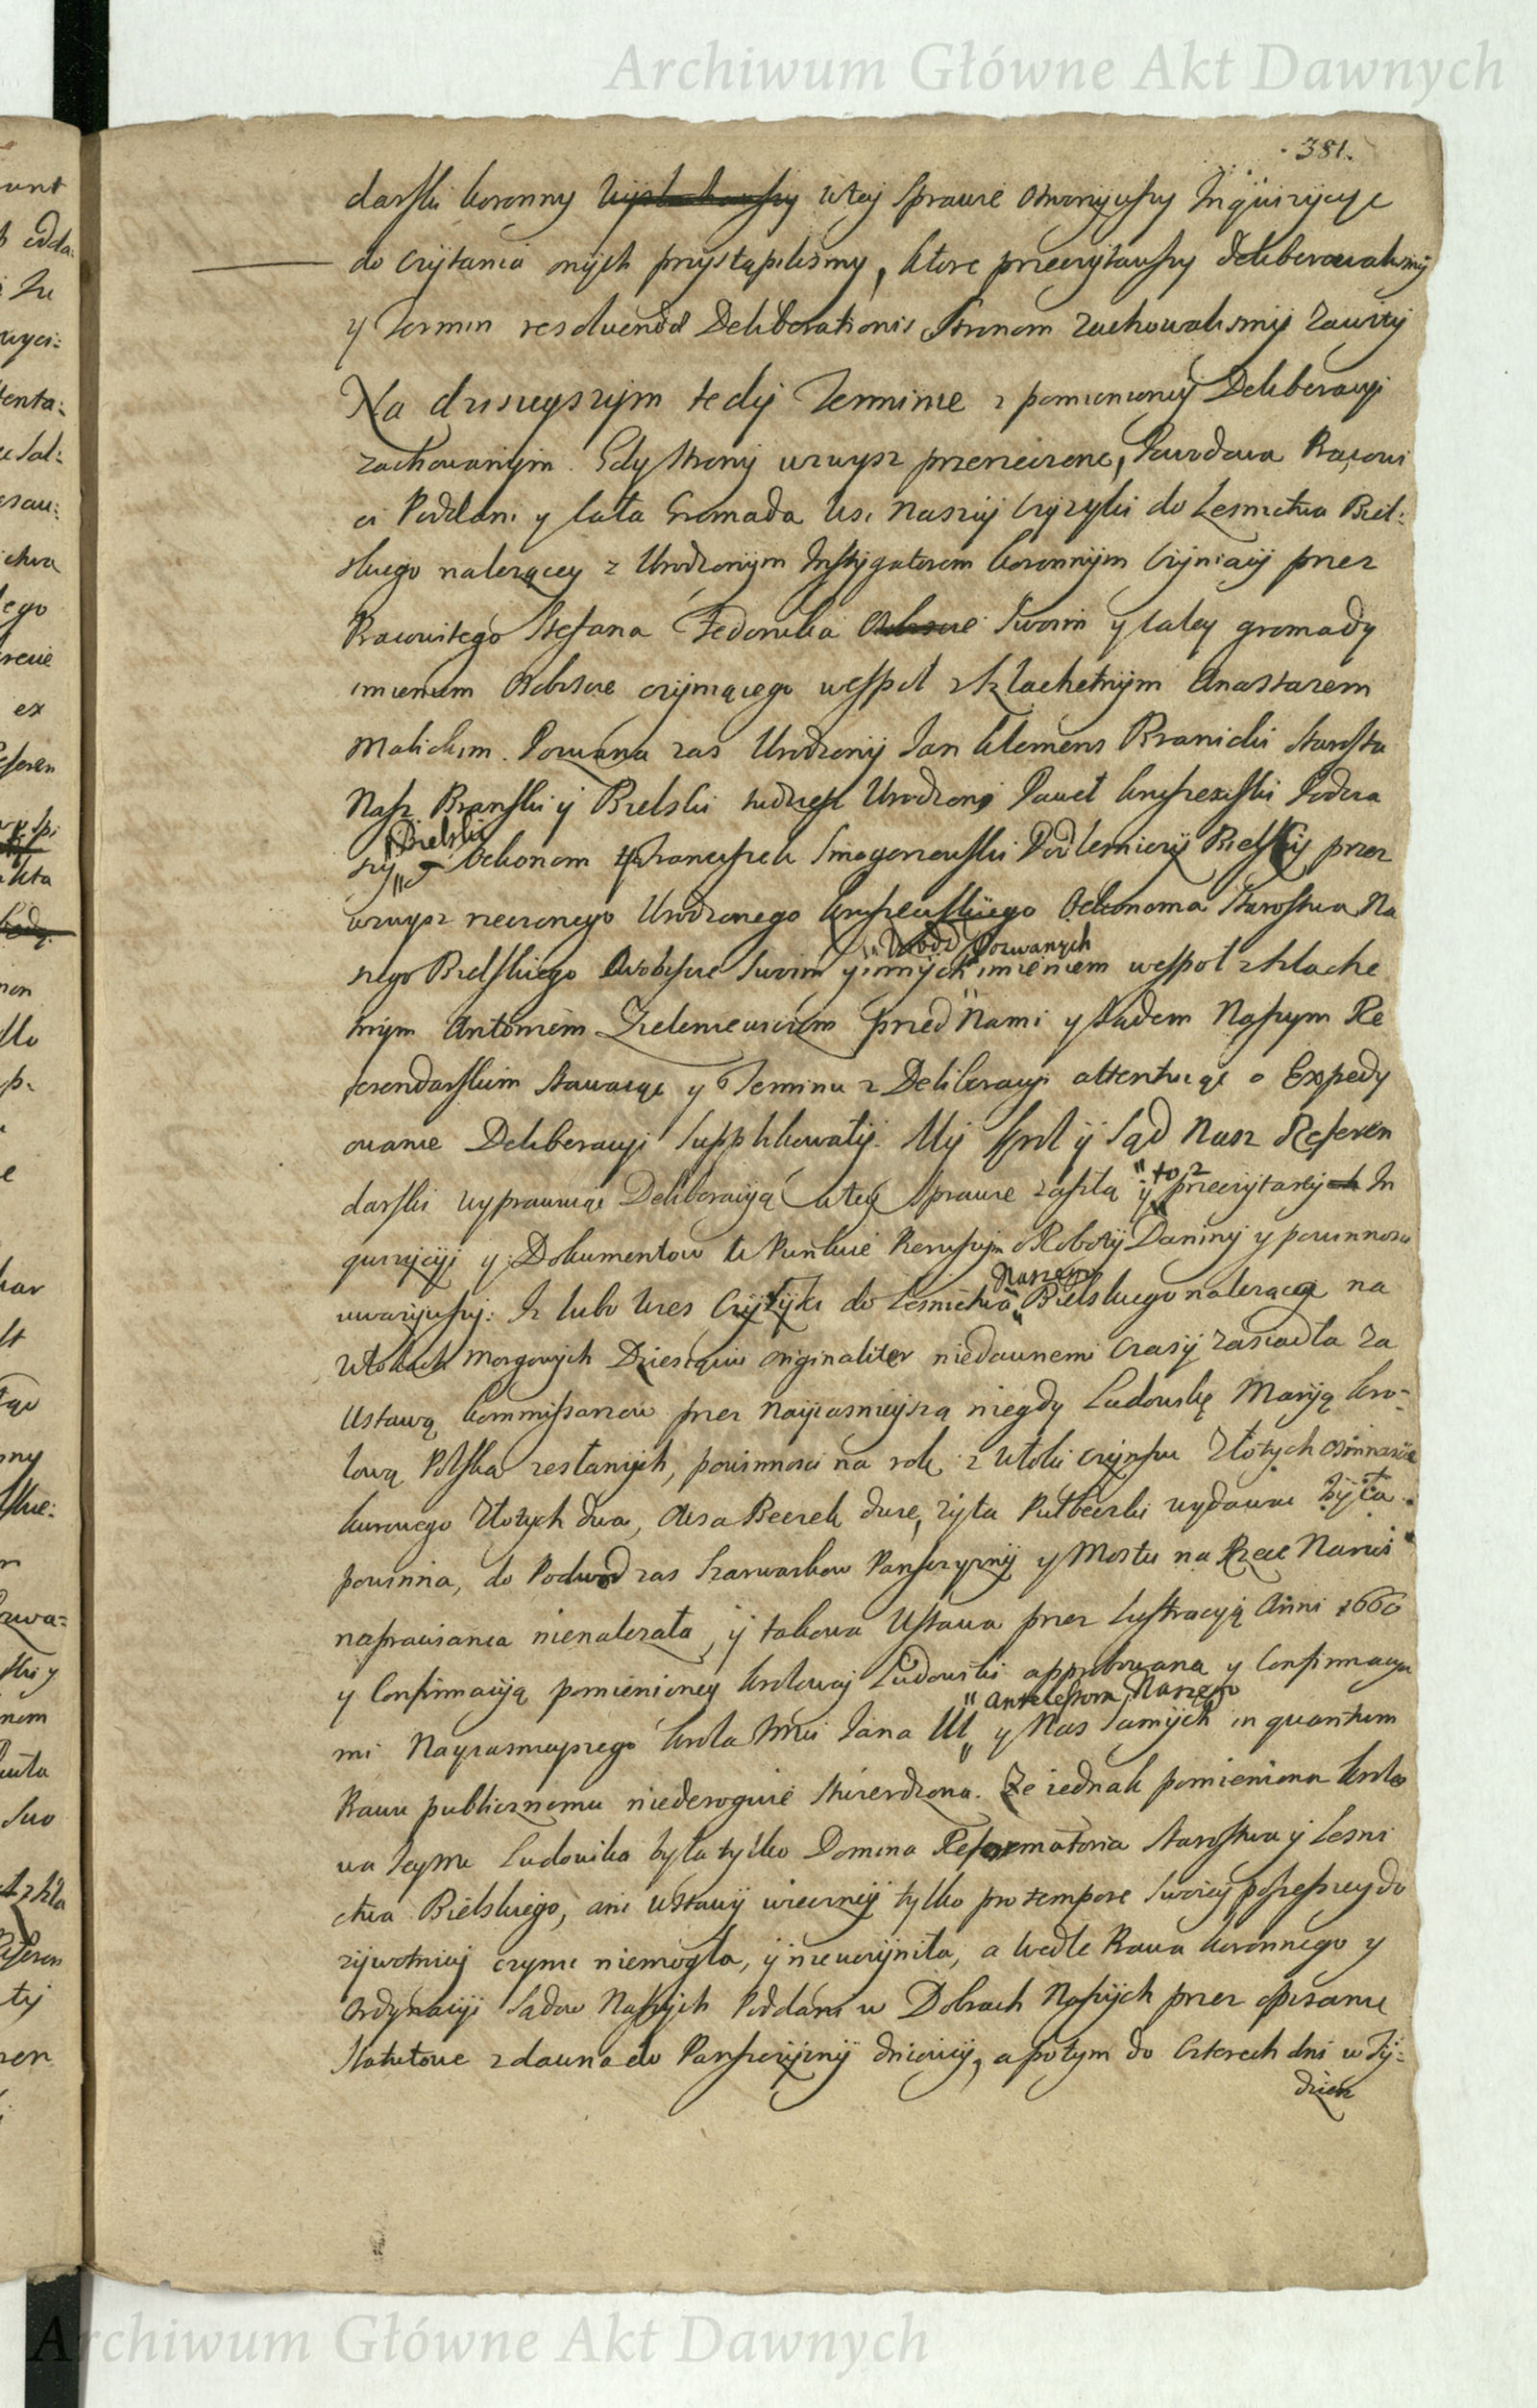 Archiwum Główne Akt Dawnych
381.
darski koronny w tey sprawie otworzywszy Inquizycye
do czytania onych przystąpilismy, ktore przeczytawszy deliberowalismy
y Termin resolvendæ Deliberationis stronom zachowalismy zawity
Na dzisieyszym tedy Terminie z pomienioney Deliberacyi
zachowanym. Gdy strony wzwysz przerzeczone, Powodowa Pracowi
ci Poddani y cała Gromada wsi naszey Czyzyki do Lesnictwa Biel:
skiego nalezącey z Urodzonym Instygatorem koronnym czyniący przez
Pracowitego Stefana Fedoruka swoim y całey gromady
imieniem Oblicznie czyniącego wespoł z szlachetnym Anastazem
Malickim. Pozwana zas Urodzony Jan Klemens Branicki starosta
Nasz Branski y Bielski tudziesz Urodzony Paweł Podsta
Bielski
Oekonom Franciszek Smogorzewski Podlesniczy Bielski przez
wzwysz rzeczonego Urodzonego Oekonoma Starostwa Na
Pozwanych
szego Bielskiego swoim y innych imieniem wespoł z szlache
tnym Antonim przed Nami y sądem Naszym Re
ferendarskim stawaiąc y Terminu z Deliberacyi attentuiąc o Expedy
owanie Deliberacyi supplikowały. My krol y Sąd Nasz Referen
to z
darski wyprawuiąc Deliberacyją w tey sprawie zaszłą y przeczytanych In
quizycyi y Dokumentow w Punkcie Pierwszym o Roboty Daniny y powinnosci
Naszego
uwazywszy: Iz lubo wies Czyzyki do Lesnictwa Bielskiego naleząca na
włokach morgowych Dziesiąciu originaliter niedawnemi czasy zasiadła za
Ustawą kommissarzow przez Nayiasnieyszą niegdy Ludowikę Maryą kro-
lową Polską zesłanych, powinnosci na rok z włoki czynszu Złotych osimnascie
kurowego Złotych dwa, Owsa Beczek dwie, zyta Pułbeczki wydawać była
powinna, do Podwod zas szarwarkow Panszczyzny y Mostu na Rzece Narwi
naprawiania nienalezała, y takowa Ustawa przez Lustracyią Anni 1660
y Confirmacyią pomienioney krolowey Ludowiki approbowana y Confirmacya
Antecessora Naszego
mi Nayiasnieyszego krola Jmci Jana III y Nas samych in quantum
Prawu publicznemu niederoguie stwierdzona. Ze iednak pomieniona krolo
wa Jeymc Ludowika była tylko Domina Reformatoria Starostwa y Lesni
ctwa Bielskiego, ani ustawy wieczney tylko pro tempore swoiey possessyey do
zywotniey czynić niemogła, y nieuczyniła, a wedle Prawa koronnego y
Ordynacyi Sądow Naszych Poddani w Dobrach Naszych przez opisanie
Statutowe z dawna do Panszczyzny dniowey, a potym do czterech dni w Ty:
dzien
Archiwum Główne Akt Dawnych